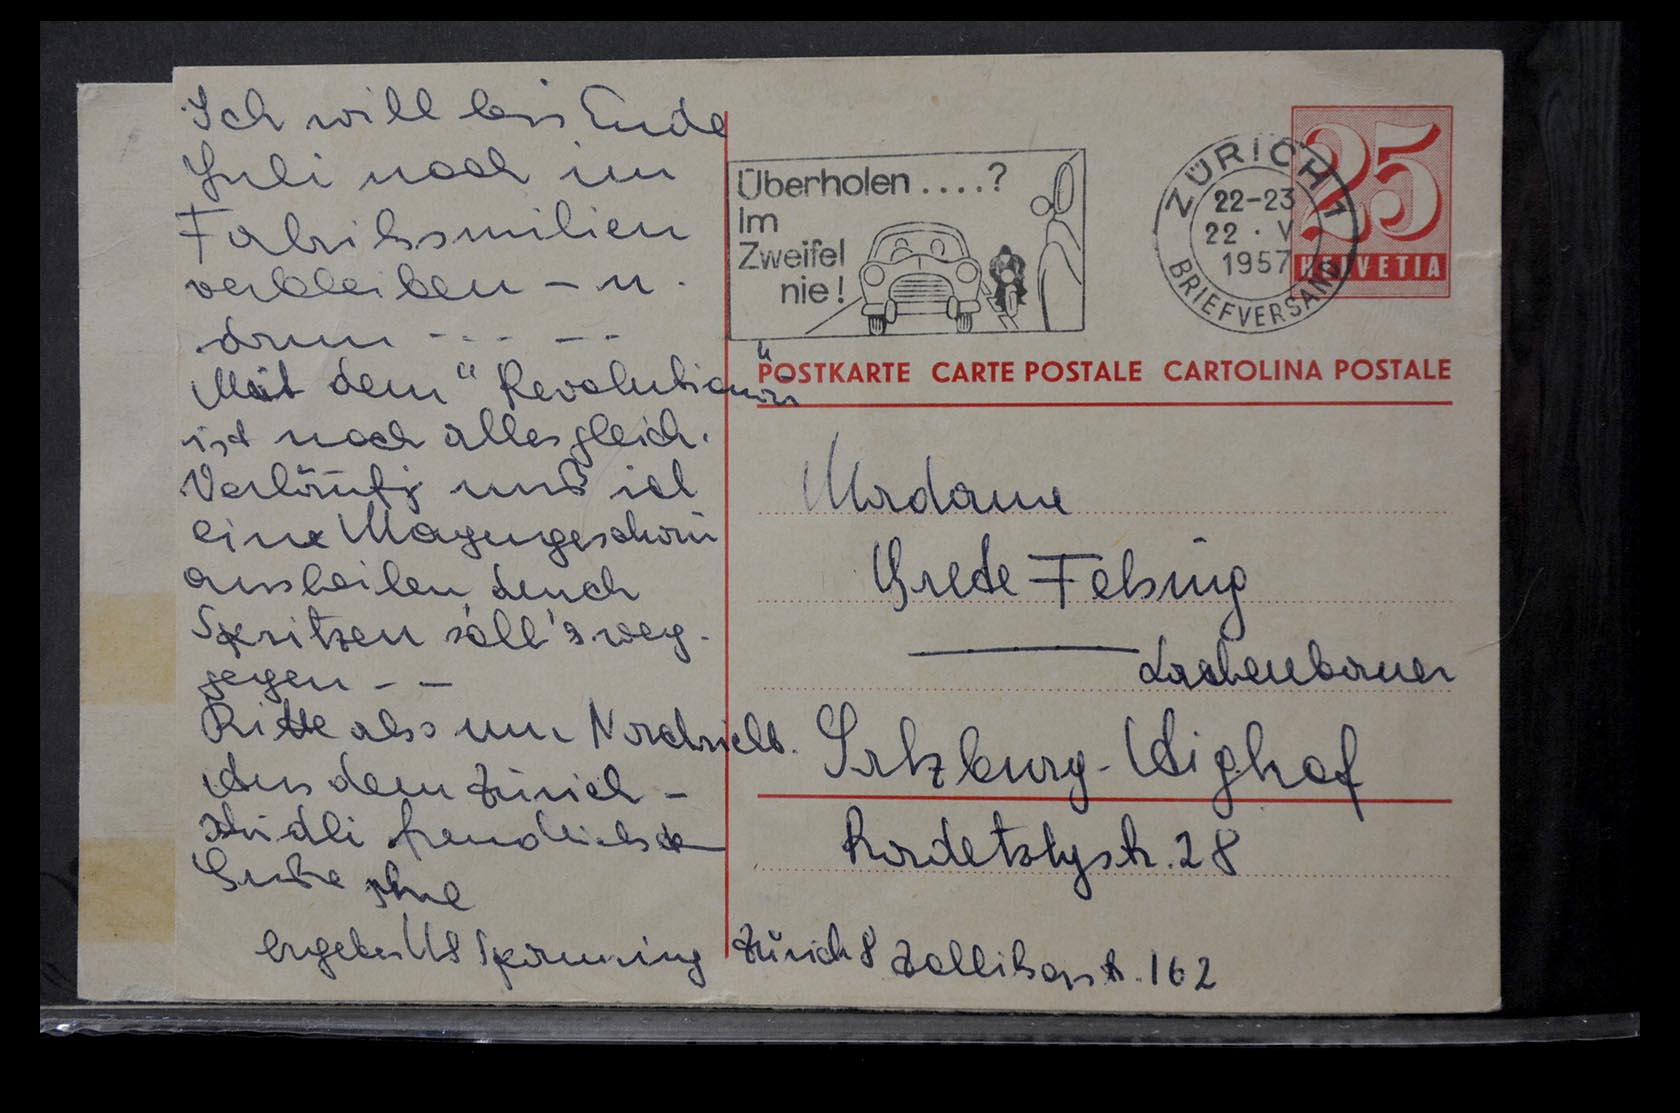 Ich will bis Ende
Juli noch im
Fabriksmilieu
verbleiben – u.
drum – – – – –
Mit dem "Revolutionär"
ist noch alles gleich.
Vorläufig muß ich
eine Magengeschwür
ausheilen, durch
Spritzen soll's weg-
gegen – –
Bitte also um Nachricht.
Aus dem Zürich –
Stüdli freundlichste
Grüße Ihre
ergebene
Zürich 8 Zollikerstr. 162
Überholen ....?
Im
Zweifel
nie!
ZÜRICH 1
22-23
22 · V
1957
BRIEFVERSAND
25
HELVETIA
POSTKARTE CARTE POSTALE CARTOLINA POSTALE
Madame
Grete Felsing
Salzburg-Aighof
Radetzkystr. 28